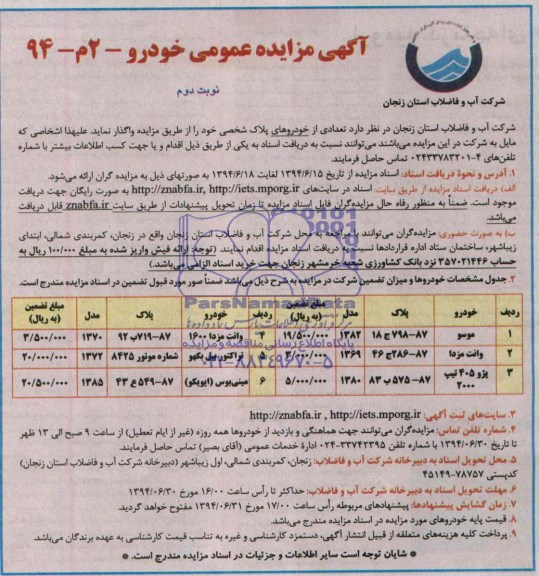 آگهی مزایده عمومی خودرو - ۲م - ۹۴
نوبت دوم
شرکت آب و فاضلاب استان زنجان
شرکت آب و فاضلاب استان زنجان در نظر دارد تعدادی از خودروهای پلاک شخصی خود را از طریق مزایده واگذار نماید. علیهذا اشخاصی که
مایل به شرکت در این مزایده می‌باشند می‌توانند نسبت به دریافت اسناد به یکی از طریق ذیل اقدام و یا جهت کسب اطلاعات بیشتر با شماره
تلفن‌های ۴-۰۲۴۳۳۷۸۳۲۰۱ تماس حاصل فرمایند.
۱. آدرس و نحوة دریافت اسناد: اسناد مزایده از تاریخ ۱۳۹۴/۶/۱۵ لغایت ۱۳۹۴/۶/۱۸ به صورتهای ذیل به مزایده گران ارائه می‌شود.
الف) دریافت اسناد مزایده از طریق سایت: اسناد در سایت‌های http://znabfa.ir, http://iets.mporg.ir به صورت رایگان جهت دریافت
موجود است. ضمناً به منظور رفاه حال مزایده‌گران فایل اسناد مزایده تا زمان تحویل پیشنهادات از طریق سایت znabfa.ir قابل دریافت
می‌باشد.
ب) به صورت حضوری: مزایده‌گران می‌توانند با مراجعه به محل شرکت آب و فاضلاب استان زنجان واقع در زنجان، کمربندی شمالی، ابتدای
زیباشهر، ساختمان ستاد اداره قراردادها نسبت به دریافت اسناد مزایده اقدام نمایند. (توجه: ارائه فیش واریز شده به مبلغ ۱۰۰/۰۰۰ ریال به
حساب ۳۵۷۰۲۱۴۴۶ نزد بانک کشاورزی شعبه خرمشهر زنجان جهت خرید اسناد الزامی می‌باشد.)
۲. جدول مشخصات خودروها و میزان تضمین شرکت در مزایده به شرح ذیل می‌باشد ضمناً صور مورد قبول تضمین در اسناد مزایده مندرج است.
ردیف خودرو پلاک مدل مبلغ تضمین (به ریال) ردیف خودرو پلاک مدل مبلغ تضمین (به ریال)
۱ موسو ۸۷-۷۹۸ج۱۸ ۱۳۸۲ ۱۹/۵۰۰/۰۰۰ ۴ وانت مزدا ۱۶۰۰ ۸۷-۷۱۹ب۹۲ ۱۳۷۰ ۳/۵۰۰/۰۰۰
۲ وانت مزدا ۸۷-۲۸۶ج۴۶ ۱۳۶۹ ۳/۰۰۰/۰۰۰ ۵ تراکتور بیل بکهو شماره موتور ۸۴۲۵ ۱۳۷۲ ۲۰/۰۰۰/۰۰۰
۳ پژو ۴۰۵ تیپ ۲۰۰۰ ۸۷-۵۷۵ب۸۳ ۱۳۸۰ ۵/۰۰۰/۰۰۰ ۶ مینی‌بوس (ایویکو) ۸۷-۵۴۹ع۴۳ ۱۳۸۵ ۲۰/۵۰۰/۰۰۰
ParsNamadData
پایگاه اطلاع رسانی مناقصه و مزایده
۰۲۱-۸۸۳۴۹۶۷۰-۵
۳. سایت‌های ثبت آگهی: http://znabfa.ir , http://iets.mporg.ir
۴. شماره تلفن تماس: مزایده‌گران می‌توانند جهت هماهنگی و بازدید از خودروها همه روزه (غیر از ایام تعطیل) از ساعت ۹ صبح الی ۱۳ ظهر
تا تاریخ ۱۳۹۴/۰۶/۳۰ با شماره تلفن ۳۳۷۴۲۳۹۵-۰۲۴ ادارة خدمات عمومی (آقای بصیر) تماس حاصل فرمایند.
۵. محل تحویل اسناد به دبیرخانه شرکت آب و فاضلاب: زنجان، کمربندی شمالی، اول زیباشهر (دبیرخانه شرکت آب و فاضلاب استان زنجان)
کدپستی ۷۸۷۵۷-۴۵۱۴۹
۶. مهلت تحویل اسناد به دبیرخانه شرکت آب و فاضلاب: حداکثر تا رأس ساعت ۱۶/۰۰ مورخ ۱۳۹۴/۰۶/۳۰
۷. زمان گشایش پیشنهادها: پیشنهادهای مربوطه رأس ساعت ۱۷/۰۰ مورخ ۱۳۹۴/۰۶/۳۱ مفتوح خواهد گردید.
۸. قیمت پایه خودروهای مورد مزایده در اسناد مزایده مندرج می‌باشد.
۹. پرداخت کلیه هزینه‌های متعلقه از قبیل انتشار آگهی، دستمزد کارشناسی و غیره به تناسب قیمت کارشناسی به عهده برندگان می‌باشد.
* شایان توجه است سایر اطلاعات و جزئیات در اسناد مزایده مندرج است. *